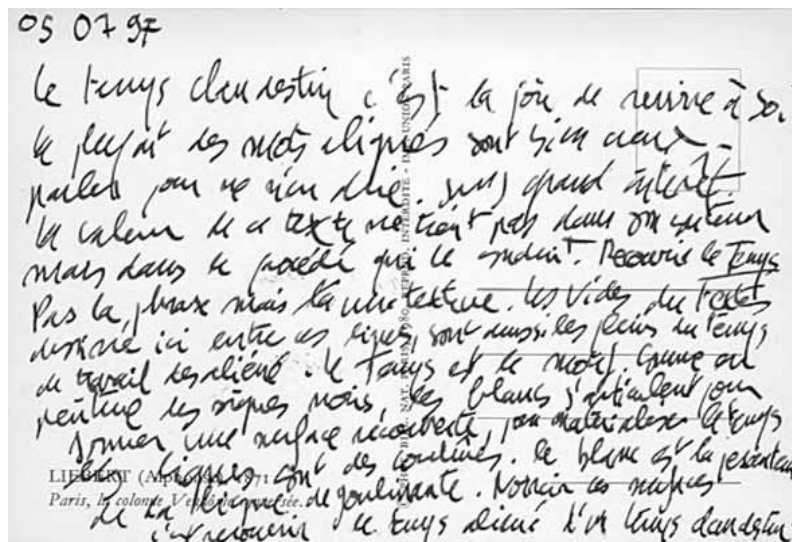 05 07 97
Le temps clandestin c'est la joie de revivre à soi
des mots alignés sont bien creux
parler pour ne rien dire. sans grand intérêt.
La valeur de ce texte ne tient pas dans son
mais dans le procédé qui le conduit. Recouvrir le Temps
Pas la phrase mais la texture. Les vides du Texte
ici entre ces lignes, sont aussi les pleins du Temps
de travail désaliéné. Le Temps est le motif. Comme en
peinture les signes noirs, les blancs s'articulent pour
former une surface recouverte, pour matérialiser le temps
Les lignes sont des coulures. le blanc est la
de la. Noircir ces surfaces
c'est recouvrir le temps aliéné d'un temps clandestin
LIÉBERT (Alphonse). 1871
Paris, la colonne Vendôme renversée.
BIBL. NAT. PARIS 1980. REPROD. INTERDITE - IMP. UNION PARIS